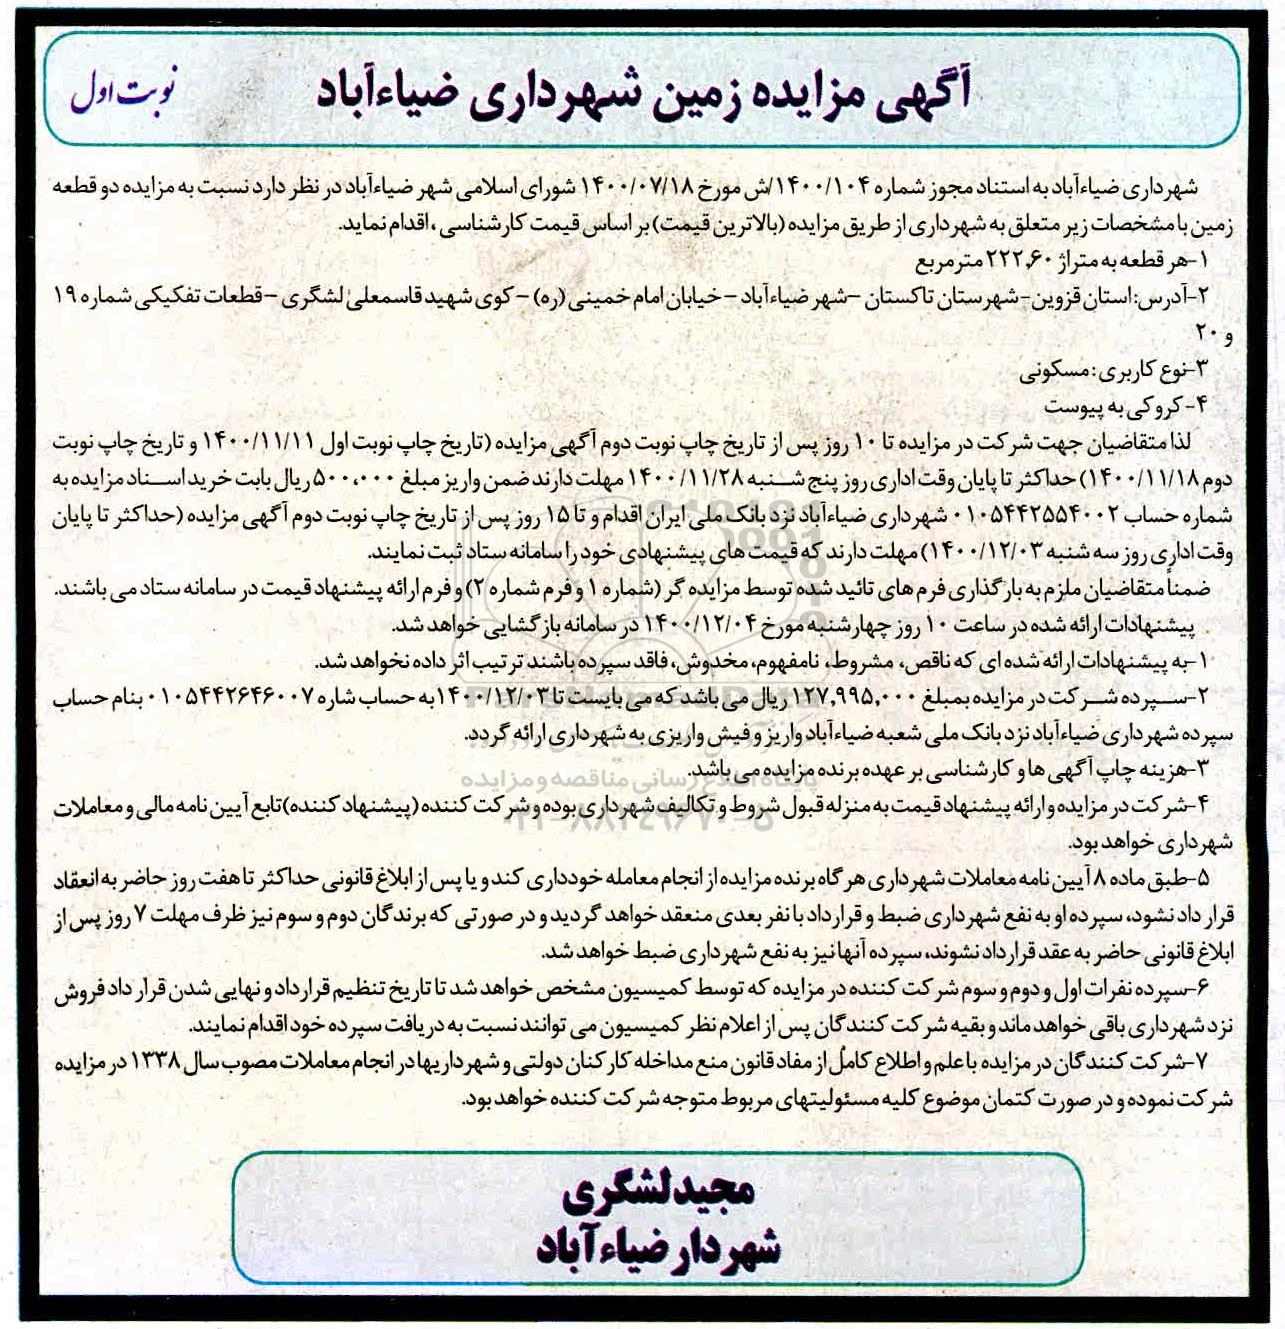 آگهی مزایده زمین شهرداری ضیاءآباد
نوبت اول
شهرداری ضیاءآباد به استناد مجوز شماره ۱۴۰۰/۱۰۴/ش مورخ ۱۴۰۰/۰۷/۱۸ شورای اسلامی شهر ضیاءآباد در نظر دارد نسبت به مزایده دو قطعه
زمین با مشخصات زیر متعلق به شهرداری از طریق مزایده (بالاترین قیمت) بر اساس قیمت کارشناسی ، اقدام نماید.
۱-هر قطعه به متراژ ۲۲۲٫۶۰ مترمربع
۲-آدرس: استان قزوین-شهرستان تاکستان –شهر ضیاءآباد – خیابان امام خمینی (ره) – کوی شهید قاسمعلی لشگری –قطعات تفکیکی شماره ۱۹
و ۲۰
۳-نوع کاربری: مسکونی
۴-کروکی به پیوست
لذا متقاضیان جهت شرکت در مزایده تا ۱۰ روز پس از تاریخ چاپ نوبت دوم آگهی مزایده (تاریخ چاپ نوبت اول ۱۴۰۰/۱۱/۱۱ و تاریخ چاپ نوبت
دوم ۱۴۰۰/۱۱/۱۸) حداکثر تا پایان وقت اداری روز پنج شنبه ۱۴۰۰/۱۱/۲۸ مهلت دارند ضمن واریز مبلغ ۵۰۰،۰۰۰ ریال بابت خرید اسناد مزایده به
شماره حساب ۰۱۰۵۴۴۲۵۵۴۰۰۲ شهرداری ضیاءآباد نزد بانک ملی ایران اقدام و تا ۱۵ روز پس از تاریخ چاپ نوبت دوم آگهی مزایده (حداکثر تا پایان
وقت اداری روز سه شنبه ۱۴۰۰/۱۲/۰۳) مهلت دارند که قیمت های پیشنهادی خود را سامانه ستاد ثبت نمایند.
ضمناً متقاضیان ملزم به بارگذاری فرم های تائید شده توسط مزایده گر (شماره ۱ و فرم شماره ۲) و فرم ارائه پیشنهاد قیمت در سامانه ستاد می باشند.
پیشنهادات ارائه شده در ساعت ۱۰ روز چهارشنبه مورخ ۱۴۰۰/۱۲/۰۴ در سامانه بازگشایی خواهد شد.
۱-به پیشنهادات ارائه شده ای که ناقص، مشروط، نامفهوم، مخدوش، فاقد سپرده باشند ترتیب اثر داده نخواهد شد.
۲-سپرده شرکت در مزایده بمبلغ ۱۲۷,۹۹۵,۰۰۰ ریال می باشد که می بایست تا ۱۴۰۰/۱۲/۰۳ به حساب شاره ۰۱۰۵۴۴۲۶۴۶۰۰۷ بنام حساب
سپرده شهرداری ضیاءآباد نزد بانک ملی شعبه ضیاءآباد واریز و فیش واریزی به شهرداری ارائه گردد.
۳-هزینه چاپ آگهی ها و کارشناسی بر عهده برنده مزایده می باشد.
پایگاه اطلاع رسانی مناقصه و مزایده
۴-شرکت در مزایده و ارائه پیشنهاد قیمت به منزله قبول شروط و تکالیف شهرداری بوده و شرکت کننده (پیشنهاد کننده) تابع آیین نامه مالی و معاملات
۰۲۱-۸۸۳۴۹۶۷۰-۵
شهرداری خواهد بود.
۵-طبق ماده ۸ آیین نامه معاملات شهرداری هرگاه برنده مزایده از انجام معامله خودداری کند و یا پس از ابلاغ قانونی حداکثر تا هفت روز حاضر به انعقاد
قرار داد نشود، سپرده او به نفع شهرداری ضبط و قرارداد با نفر بعدی منعقد خواهد گردید و در صورتی که برندگان دوم و سوم نیز ظرف مهلت ۷ روز پس از
ابلاغ قانونی حاضر به عقد قرارداد نشوند، سپرده آنها نیز به نفع شهرداری ضبط خواهد شد.
۶-سپرده نفرات اول و دوم و سوم شرکت کننده در مزایده که توسط کمیسیون مشخص خواهد شد تا تاریخ تنظیم قرارداد و نهایی شدن قرار داد فروش
نزد شهرداری باقی خواهد ماند و بقیه شرکت کنندگان پس از اعلام نظر کمیسیون می توانند نسبت به دریافت سپرده خود اقدام نمایند.
۷-شرکت کنندگان در مزایده با علم و اطلاع کامل از مفاد قانون منع مداخله کارکنان دولتی و شهرداریها در انجام معاملات مصوب سال ۱۳۳۸ در مزایده
شرکت نموده و در صورت کتمان موضوع کلیه مسئولیتهای مربوط متوجه شرکت کننده خواهد بود.
مجید لشگری
شهردار ضیاءآباد